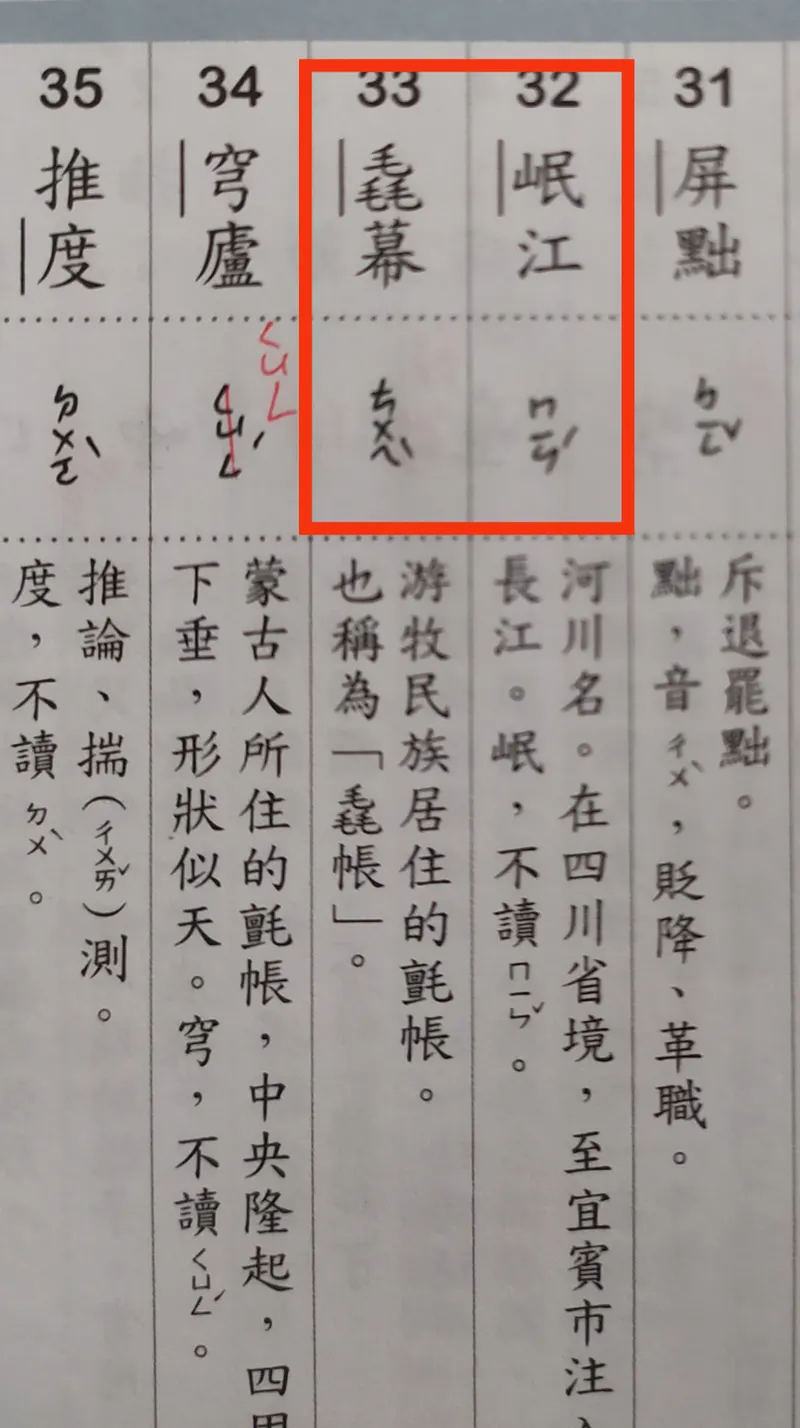 31
屏黜
ㄅㄧㄥˇ
斥退罷黜。
黜,音ㄔㄨˋ,貶降、革職。
32
岷江
ㄇㄧㄣˊ
河川名。在四川省境,至宜賓市注
長江。岷,不讀ㄇㄧㄣˇ。
33
毳幕
ㄘㄨㄟˋ
游牧民族居住的氈帳。
也稱為「毳帳」。
34
穹廬
ㄑㄩㄥˊ
ㄑㄩㄥ
蒙古人所住的氈帳,中央隆起,四周
下垂,形狀似天。穹,不讀ㄑㄩㄥˊ。
35
推度
ㄉㄨㄛˋ
推論、揣(ㄔㄨㄞˇ)測。
度,不讀ㄉㄨˋ。